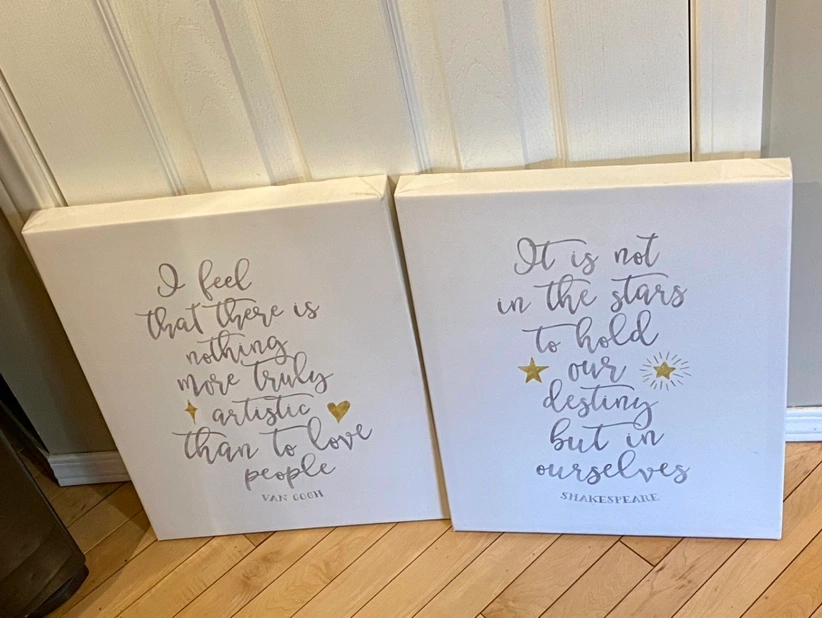 I feel
that there is
nothing
more truly
artistic
than to love
people
VAN GOGH
It is not
in the stars
to hold
our
destiny
but in
ourselves
SHAKESPEARE